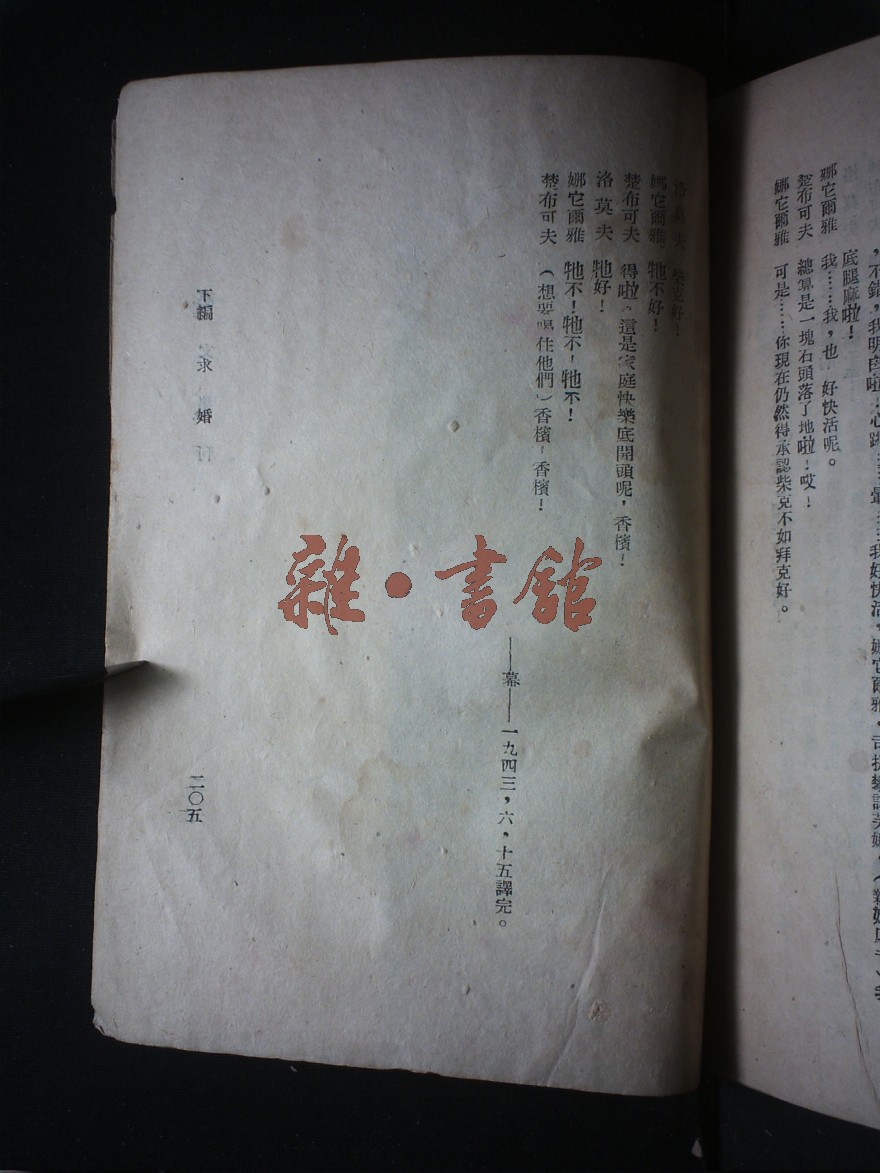 ，不錯，我明白啦…心跳……暈……我好快活，娜它爾雅，司提攀諾芙娜，（
底腿麻啦！
娜它爾雅 我……我，也 好快活呢。
楚布可夫 總算是一塊石頭落了地啦！哎！
娜它爾雅 可是……你現在仍然得承認柴克不如拜克好。
洛莫夫 柴克好！
娜它爾雅 牠不好！
楚布可夫 得啦，這是家庭快樂底開頭呢，香檳！
洛莫夫 牠好！
娜它爾雅 牠不！牠不！牠不！
楚布可夫 （想要嚷住他們）香檳！香檳！
——幕——
一九四三，六，十五譯完。
下編 求婚
二〇五
雜·書館